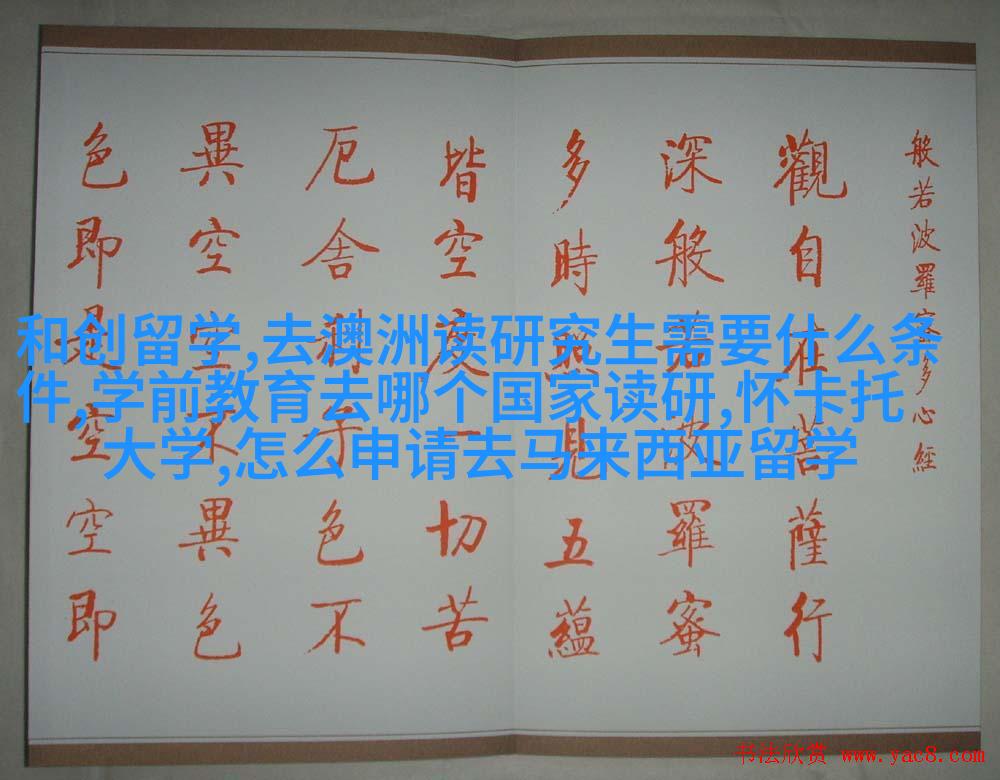 般若波羅蜜多心經
觀自在菩薩行
深般若波羅蜜
多時照見五蘊
皆空度一切苦
厄舍利子色不
異空空不異色
色即是空空即
和创留学,去澳洲读研究生需要什么条
件,学前教育去哪个国家读研,怀卡托
大学,怎么申请去马来西亚留学
书法欣赏 www.yac8.com